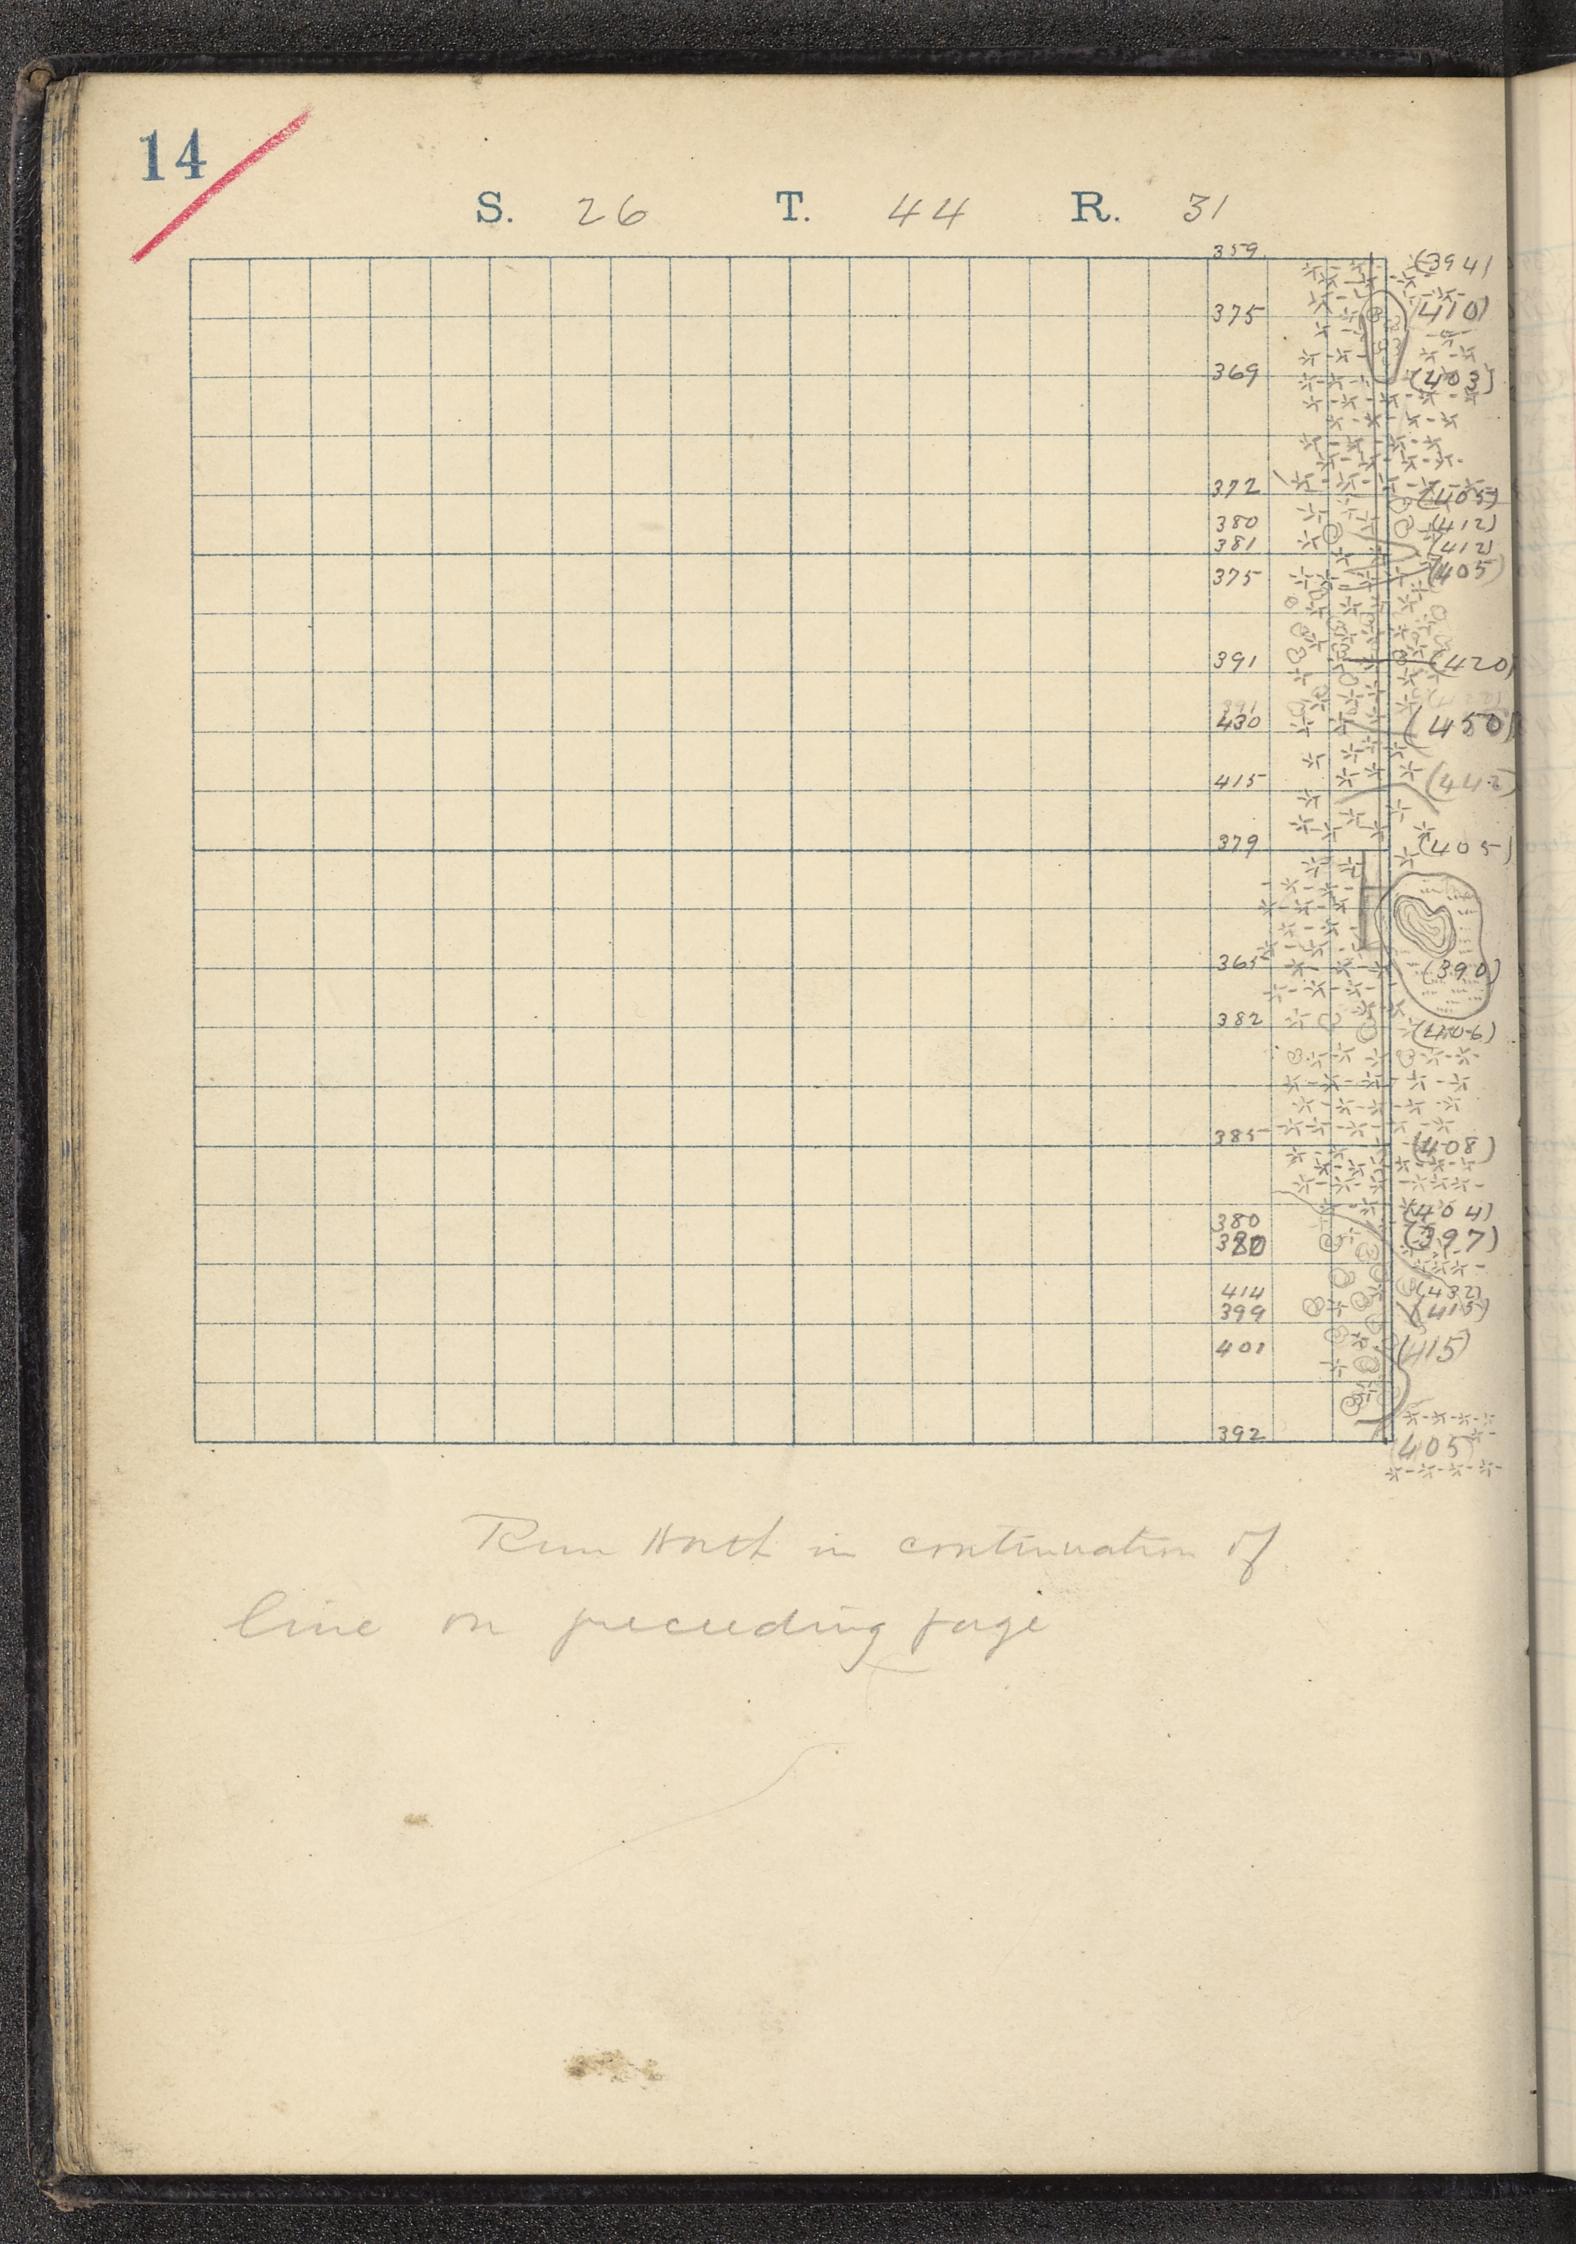 14
S. 26 T. 44 R. 31
359 (394)
375 (410)
369 (403)
372 (405)
380 (412)
381 (412)
375 (405)
391 (420)
391
430 (450)
415 (442)
379 (405)
365 (390)
382 (406)
385 (408)
380 (404)
(397)
414 (432)
399 (415)
401 (415)
392 (405)
Run North in continuation of
line on preceeding page